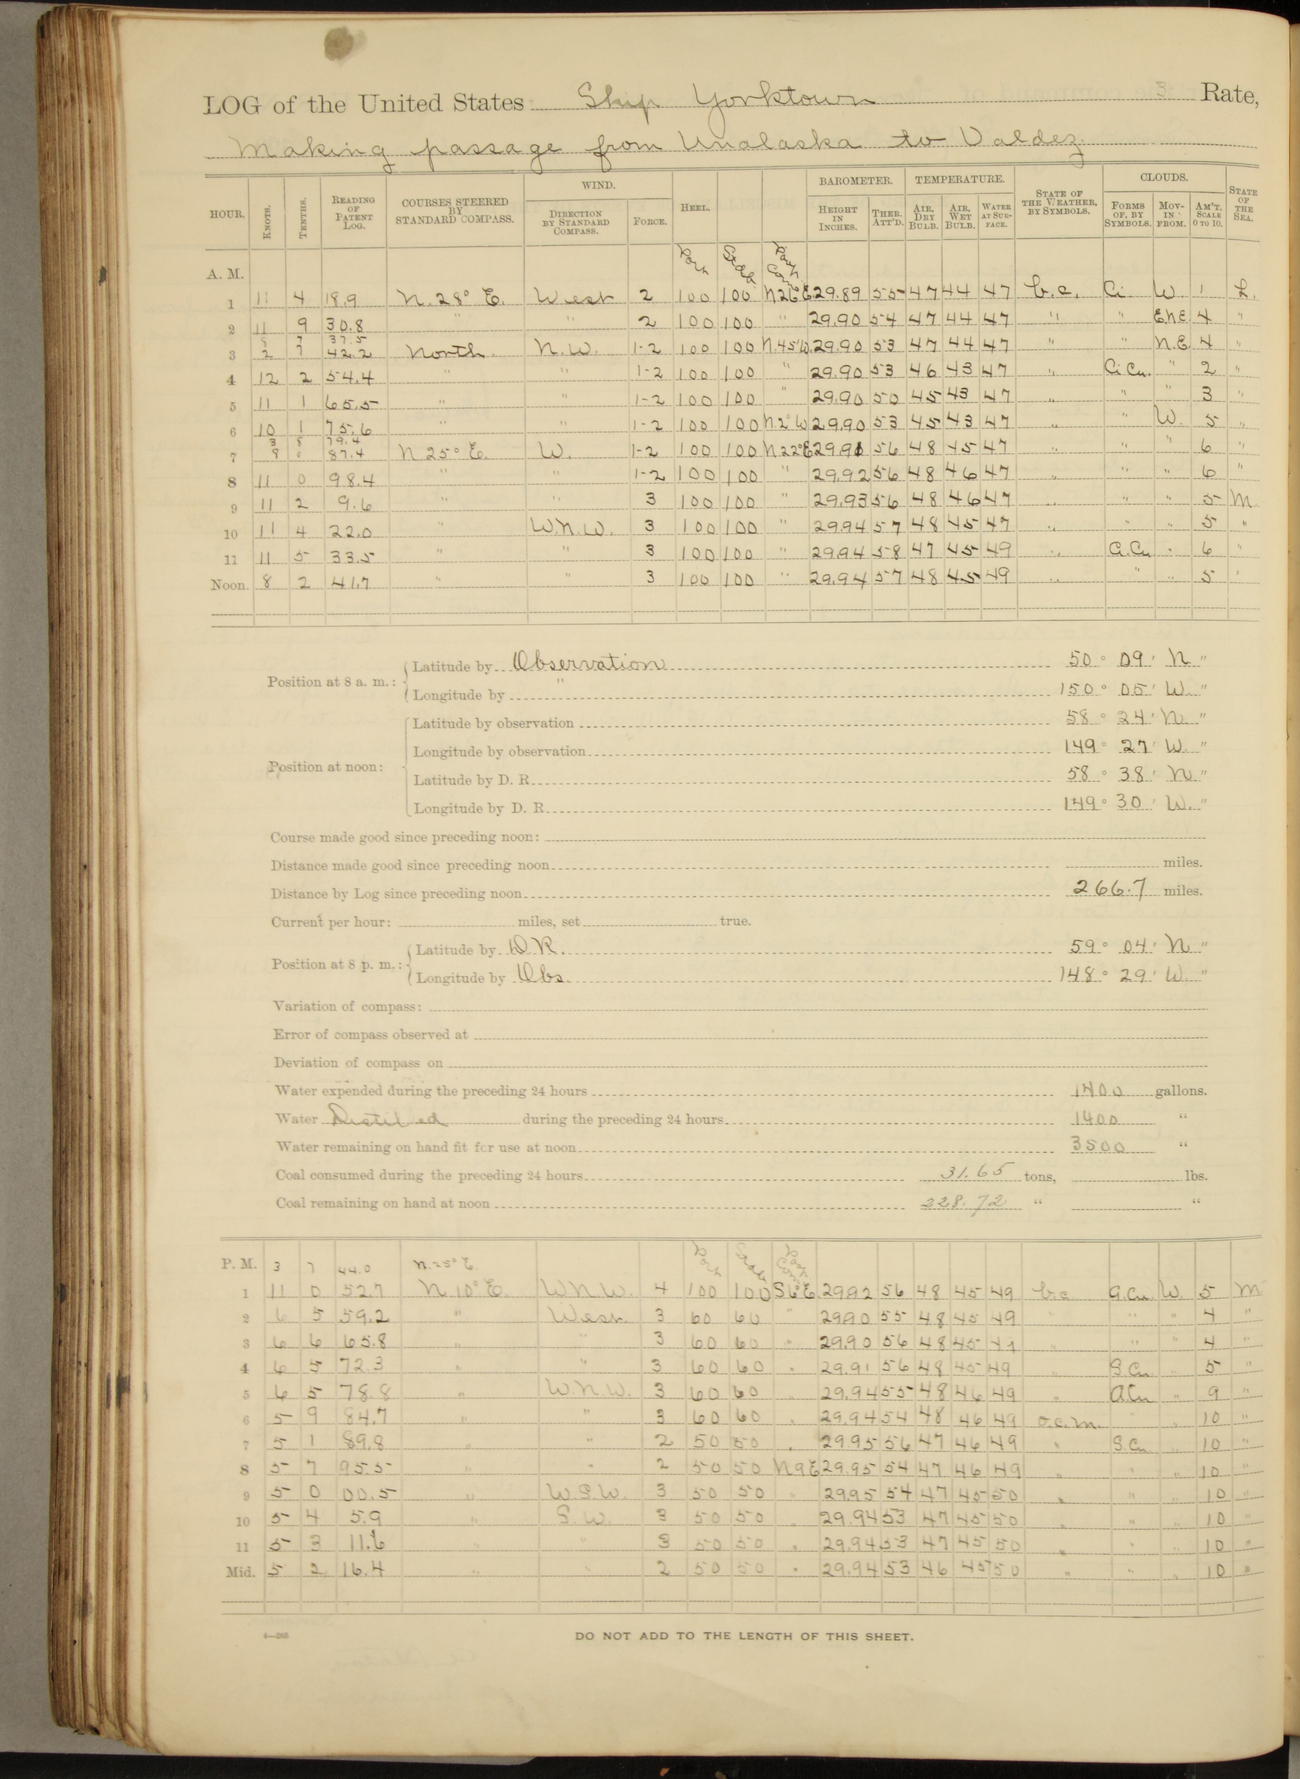 LOG of the United States Ship Yorktown 3 Rate,
Making passage from Unalaska to Valdez
HOUR. KNOTS. TENTHS. READING OF PATENT LOG. COURSES STEERED BY STANDARD COMPASS. WIND. DIRECTION BY STANDARD COMPASS. FORCE. HEEL. BAROMETER. HEIGHT IN INCHES. THER. ATT'D. TEMPERATURE. AIR, DRY BULB. AIR, WET BULB. WATER AT SURFACE. STATE OF THE WEATHER, BY SYMBOLS. CLOUDS. FORMS OF, BY SYMBOLS. MOVING FROM. AM'T, SCALE 0 TO 10. STATE OF THE SEA.
A. M. Port Stbd
1 11 4 18.9 N. 28° E. West 2 100 100 N26°E 29.89 55 47 44 47 b.c. Ci. W. 1 L.
2 11 9 30.8 " " 2 100 100 " 29.90 54 47 44 47 " " ENE 4 "
37.5
3 2 7 42.2 North N.W. 1-2 100 100 N.45°W 29.90 53 47 44 47 " " N.E. 4 "
4 12 2 54.4 " " 1-2 100 100 " 29.90 53 46 43 47 " Ci.Cu. " 2 "
5 11 1 65.5 " " 1-2 100 100 " 29.90 50 45 43 47 " " " 3 "
6 10 1 75.6 " " 1-2 100 100 N2°W 29.90 53 45 43 47 " " W. 5 "
3 8 79.4
7 8 0 87.4 N 25° E. W. 1-2 100 100 N22°E 29.91 56 48 45 47 " " " 6 "
8 11 0 98.4 " " 1-2 100 100 " 29.92 56 48 46 47 " " " 6 "
9 11 2 9.6 " " 3 100 100 " 29.93 56 48 46 47 " " " 5 M.
10 11 4 22.0 " W.N.W. 3 100 100 " 29.94 57 48 45 47 " " " 5 "
11 11 5 33.5 " " 3 100 100 " 29.94 58 47 45 49 " A.Cu. " 6 "
Noon. 8 2 41.7 " " 3 100 100 " 29.94 57 48 45 49 " " " 5 "
Position at 8 a. m.: Latitude by Observation 50° 09' N "
Longitude by " 150° 05' W. "
Position at noon: Latitude by observation 58° 24' N. "
Longitude by observation 149° 27' W. "
Latitude by D. R. 58° 38' N "
Longitude by D. R. 149° 30' W. "
Course made good since preceding noon:
Distance made good since preceding noon miles.
Distance by Log since preceding noon 266.7 miles.
Current per hour: miles, set true.
Position at 8 p. m.: Latitude by D.R. 59° 04' N "
Longitude by Obs. 148° 29' W. "
Variation of compass:
Error of compass observed at
Deviation of compass on
Water expended during the preceding 24 hours 1400 gallons.
Water Distilled during the preceding 24 hours 1400 "
Water remaining on hand fit for use at noon 3500 "
Coal consumed during the preceding 24 hours 31.65 tons, lbs.
Coal remaining on hand at noon 228.72 " "
P. M. 3 7 44.0 N. 25° E. Port Stbd
1 11 0 52.7 N 10° E. W.N.W. 4 100 100 S6°E 29.92 56 48 45 49 b.c. A.Cu. W. 5 M
2 6 5 59.2 " West 3 60 60 " 29.90 55 48 45 49 " " " 4 "
3 6 6 65.8 " " 3 60 60 " 29.90 56 48 45 49 " " " 4 "
4 6 5 72.3 " " 3 60 60 " 29.91 56 48 45 49 " S.Cu. " 5 "
5 6 5 78.8 " W.N.W. 3 60 60 " 29.94 55 48 46 49 " A.Cu. " 9 "
6 5 9 84.7 " " 3 60 60 " 29.94 54 48 46 49 o.c.m. " " 10 "
7 5 1 89.8 " " 2 50 50 " 29.95 56 47 46 49 " S.Cu. " 10 "
8 5 7 95.5 " " 2 50 50 N9E 29.95 54 47 46 49 " " " 10 "
9 5 0 00.5 " W.S.W. 3 50 50 " 29.95 54 47 45 50 " " " 10 "
10 5 4 5.9 " S.W. 3 50 50 " 29.94 53 47 45 50 " " " 10 "
11 5 3 11.6 " " 3 50 50 " 29.94 53 47 45 50 " " " 10 "
Mid. 5 2 16.4 " " 2 50 50 " 29.94 53 46 45 50 " " " 10 "
DO NOT ADD TO THE LENGTH OF THIS SHEET.